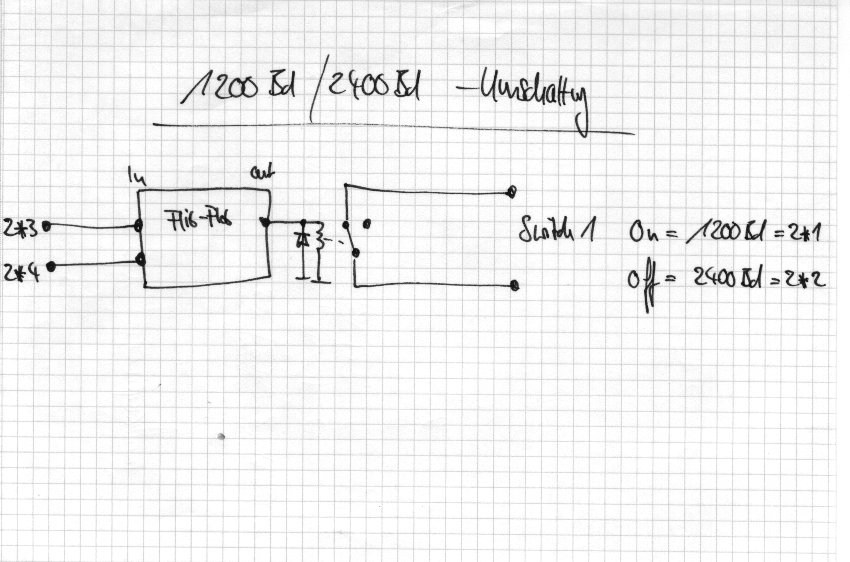 1200 Bd / 2400 Bd - Umschaltung
In
out
2*3
Flip-Flop
2*4
Switch 1 On = 1200 Bd = 2*1
Off = 2400 Bd = 2*2